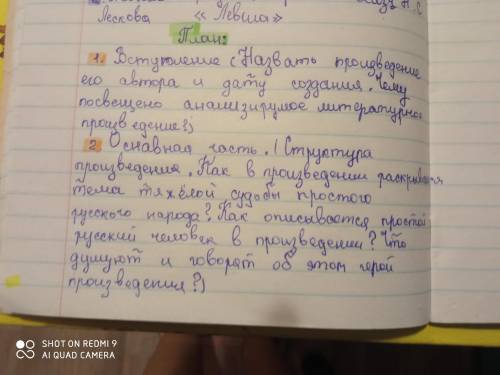 Лескова «Левша»
План:
1. Вступление (Назвать произведение
его автора и дату создания. Чему
посвещено анализирумое литературное
произведение?)
2 Оснавная часть. (Структура
произведения. Как в произведении раскрывается
тема тяжёлой судьбы простого
русского народа? Как описывается простой
русский человек в произведении? Что
думуют и говорят об этом герой
произведения?)
SHOT ON REDMI 9
AI QUAD CAMERA